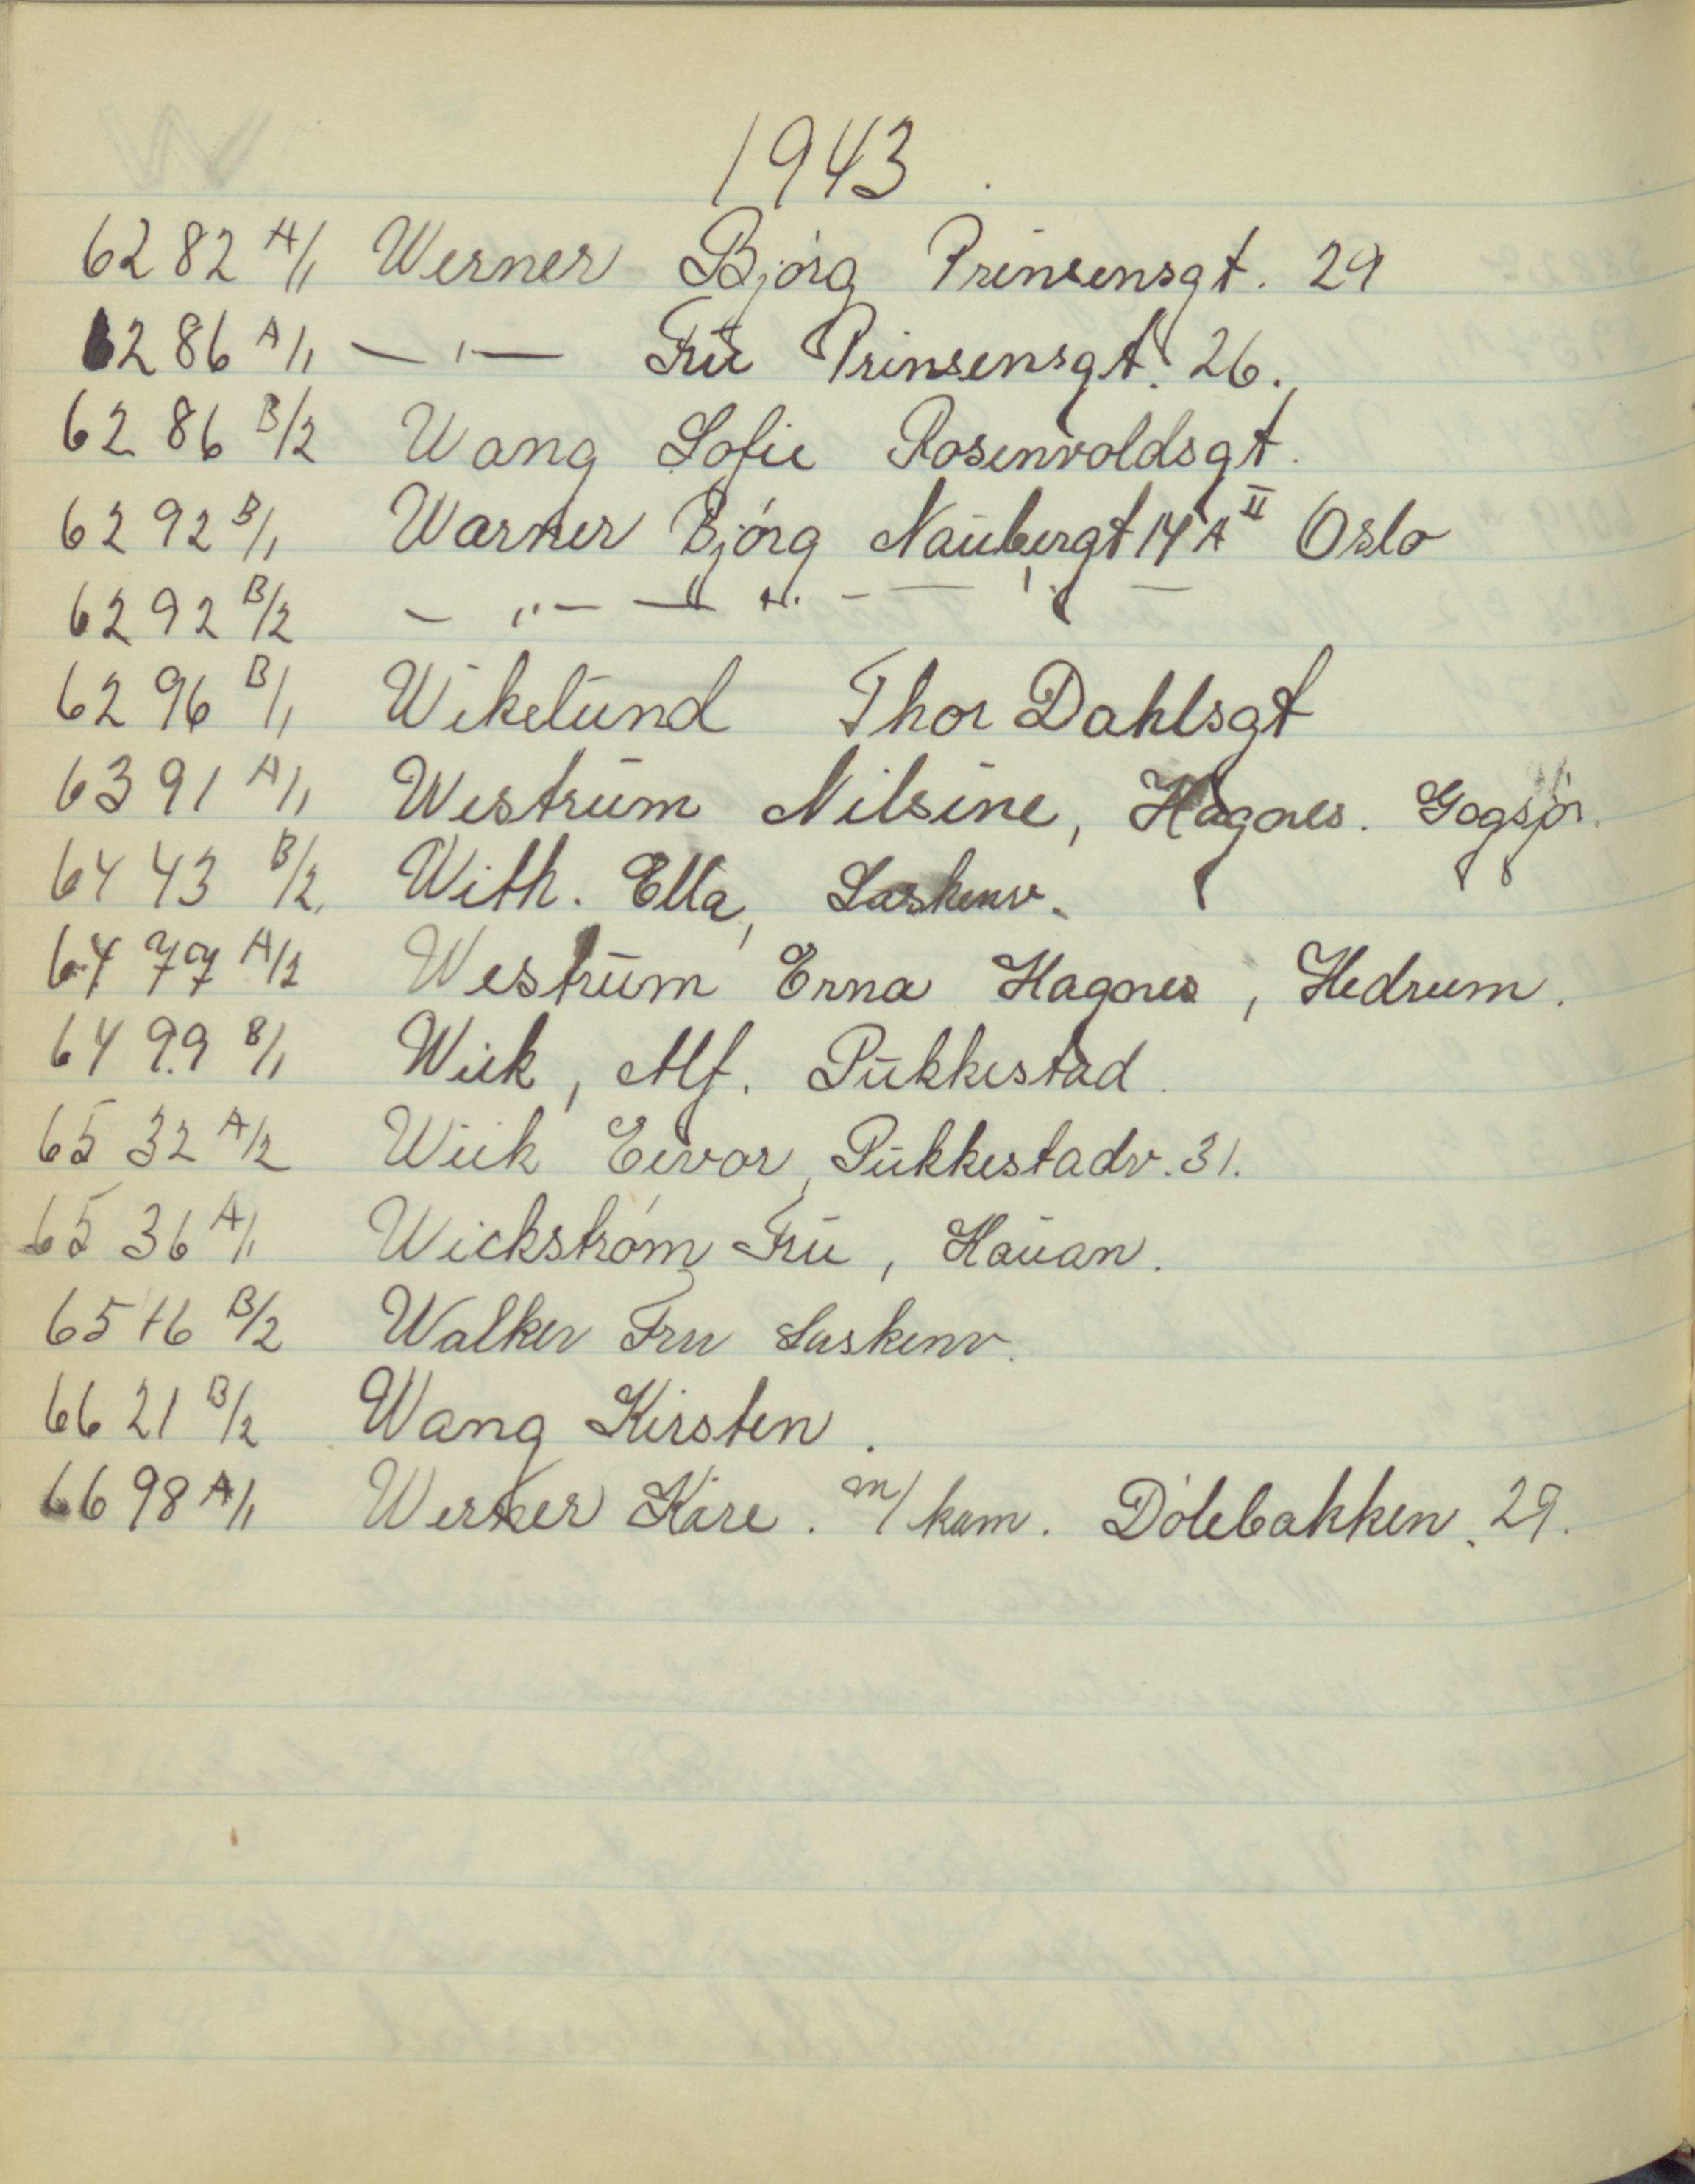 W
1943.
6282 A/1 Werner Bjórg Prinsensgt. 29
6286 A/1 — " — Frū Prinsensgt. 26.
6286 B/2 Wang Sofie Rosenvoldsgt.
6292 B/1 Warner Bjórg Naūbergt 14 A II Oslo
6292 B/2 — " — — " — — " —
6296 B/1 Wikelūnd Thor Dahlsgt
6391 A/1 Westrūm Nilsine, Hagnes. Gogsjø.
6443 B/2 With. Ella, Laskenv.
6477 A/2 Westrūm Erna Hagnes, Hedrum.
6499 B/1 Wiik, Alf. Pūkkestad
6532 A/2 Wiik Eivor, Pūkkestadv. 31.
6536 A/1 Wickstróm Frū, Haūan.
6546 B/2 Walker Fru Laskenv.
6621 B/2 Wang Kirsten.
6698 A/1 Werner Kåre. m/kam. Dólebakken. 29.